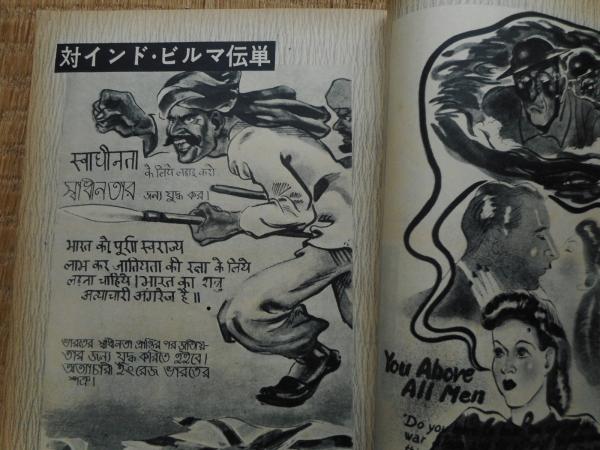 対インド・ビルマ伝単
स्वाधीनता
के लिये लड़ाइ करो
স্বাধীনতার
জন্য যুদ্ধ কর।
भारत को पुर्ण स्वराज्य
लाभ कर जातियता की रक्षा के लिये
लड़ना चाहिये। भारत का शत्रु
अत्याचारी अंगरेज है॥
ভারতের স্বাধীনতা প্রাপ্তির পর জাতিয়-
তার জন্য যুদ্ধ করিতে হইবে।
অত্যাচারী ইংরেজ ভারতের
শত্রু।
You Above
All Men
"Do you
war